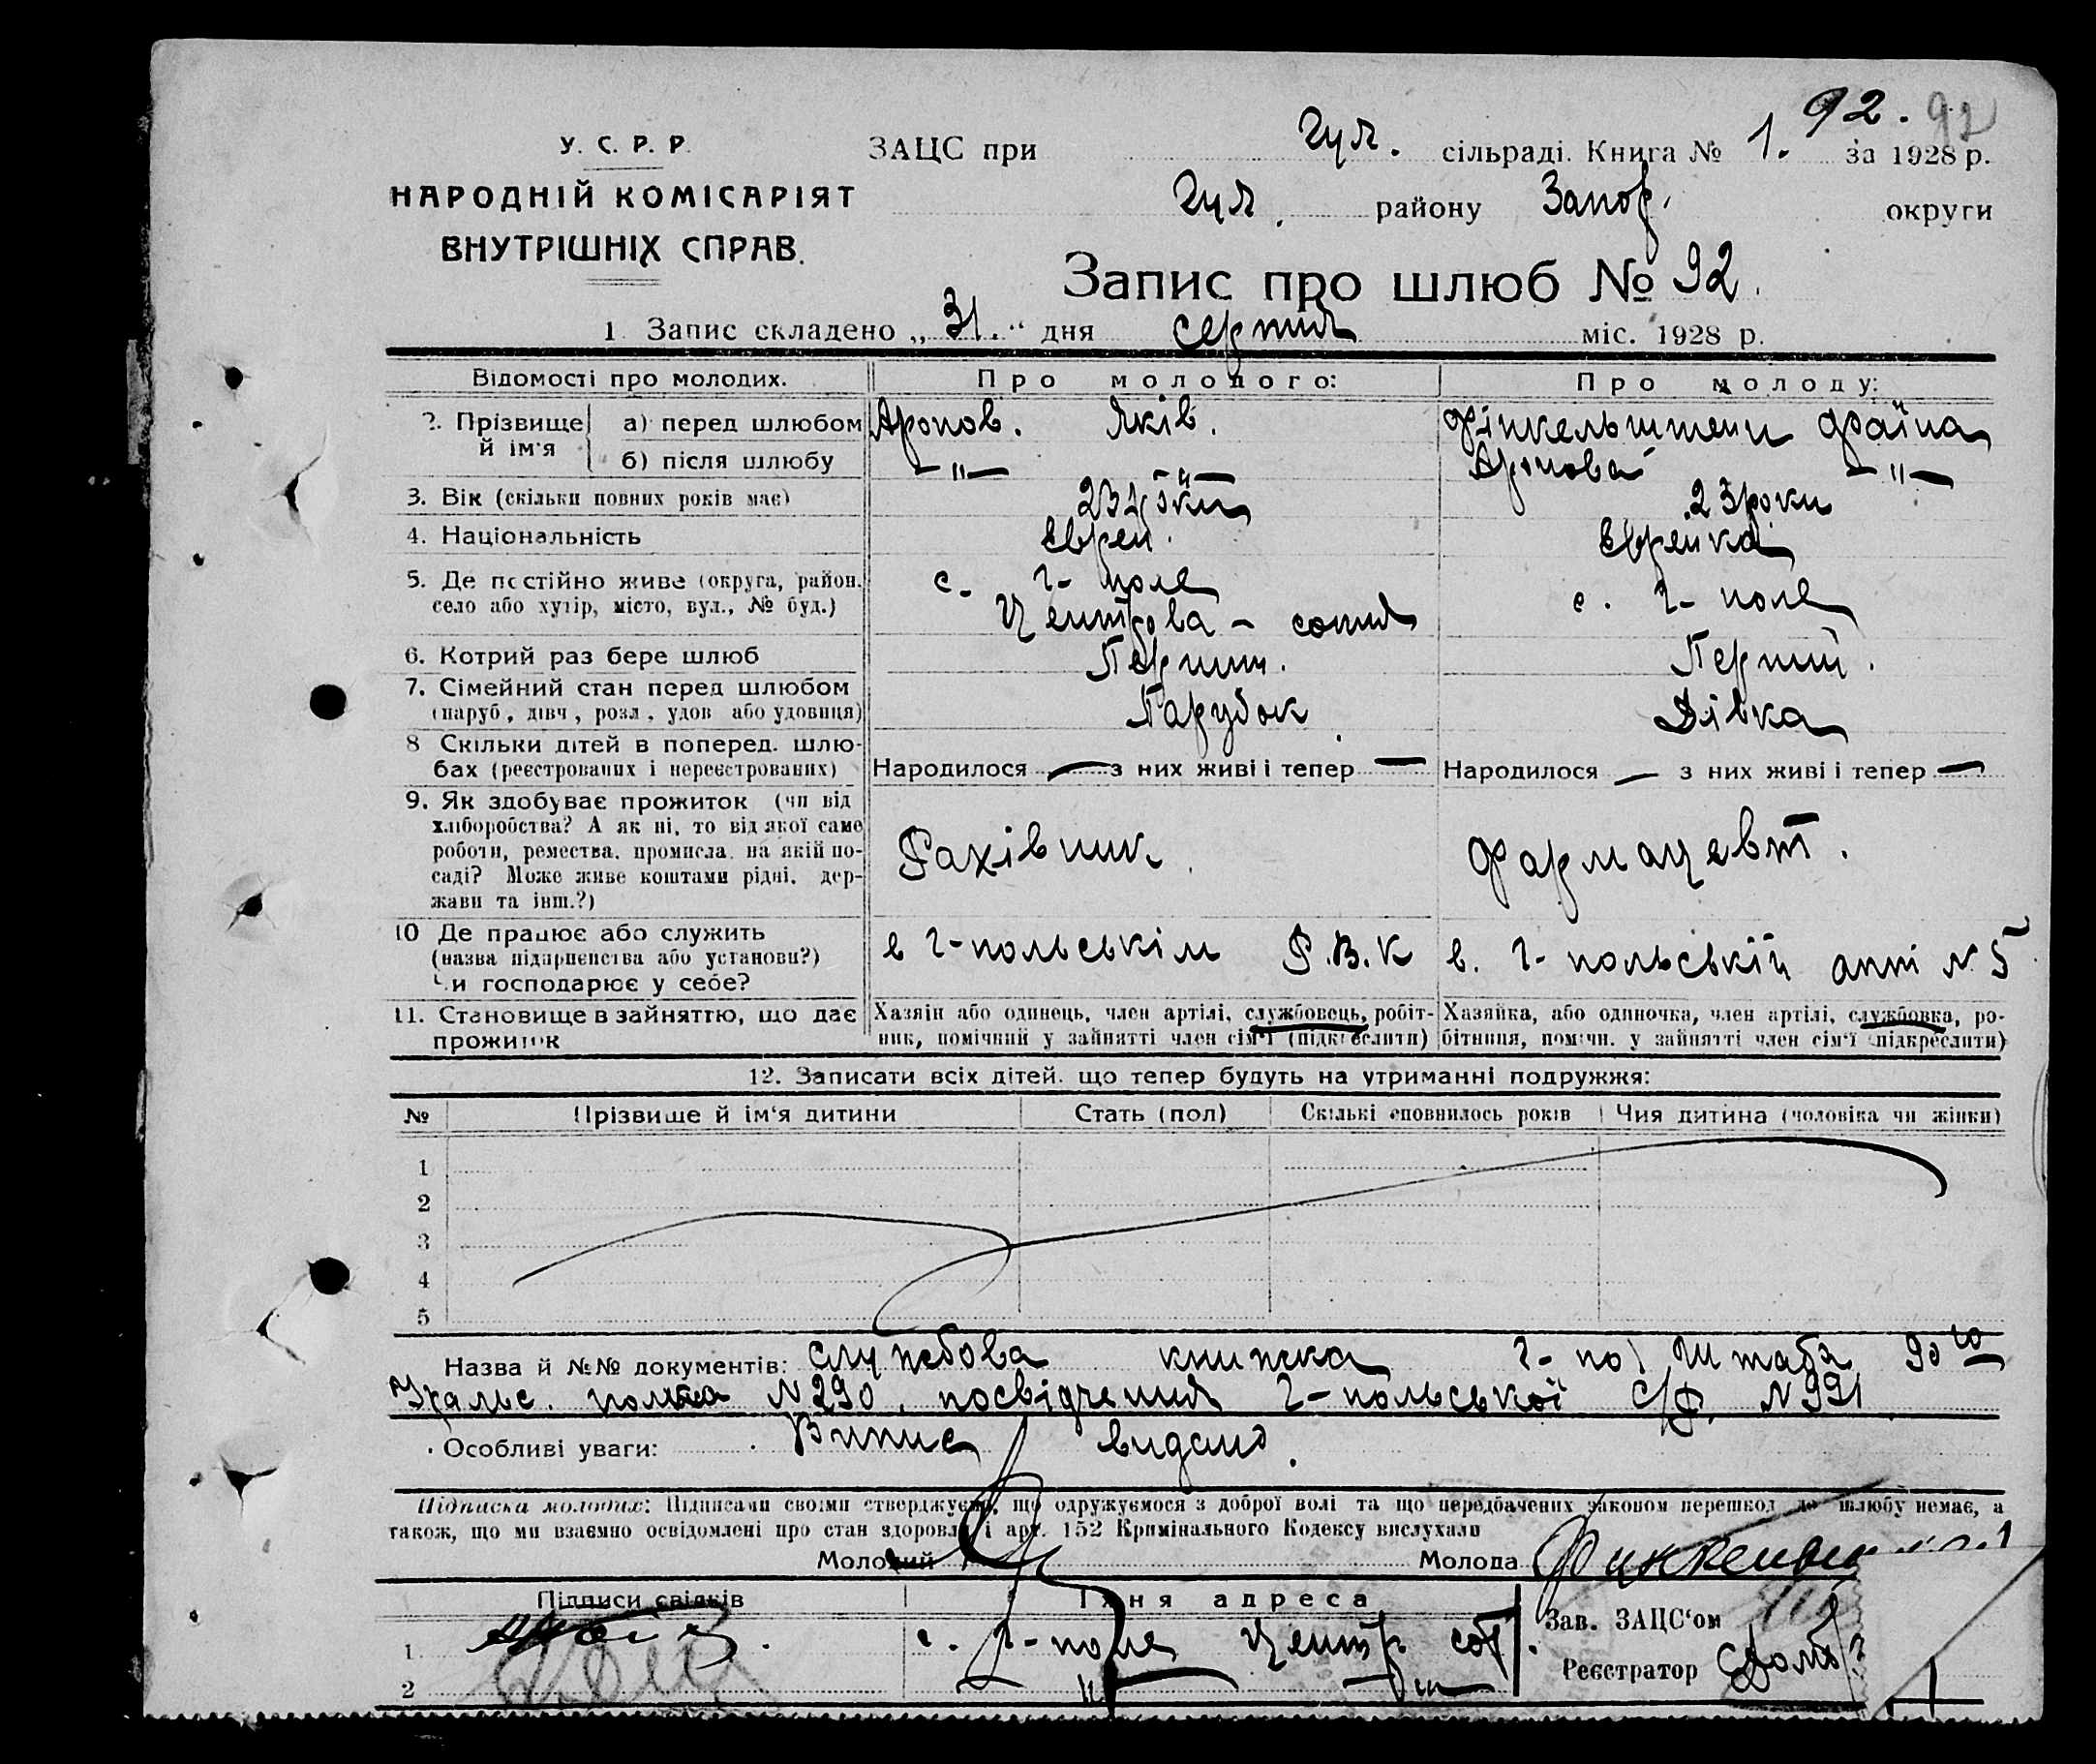 92. 92
У. С. Р. Р.
НАРОДНІЙ КОМІСАРІЯТ
ВНУТРІШНІХ СПРАВ.
ЗАЦС при Гул. сільраді. Книга № 1. за 1928 р.
Гул. району Запор. округи
Запис про шлюб № 92.
1. Запис складено „31.“ дня серпня міс. 1928 р.
Відомості про молодих. Про молодого: Про молоду:
2. Прізвище й ім'я
а) перед шлюбом Аронов. Яків. Фінкельштейн Фаїна
б) після шлюбу —"— Аронова —"—
3. Вік (скільки повних років має) 23 роки 23 роки
4. Національність Еврей. Еврейка
5. Де постійно живе (округа, район, с. Г-поле с. Г-поле
село або хутір, місто, вул., № буд.) Центрова - сотня
6. Котрий раз бере шлюб Перший. Перший.
7. Сімейний стан перед шлюбом Парубок Дівка
(паруб, дівч, розл, удов або удовиця)
8 Скільки дітей в поперед. шлю-
бах (реєстрованих і нереєстрованих) Народилося — з них живі і тепер — Народилося — з них живі і тепер —
9. Як здобуває прожиток (чи від
хліборобства? А як ні, то від якої саме
роботи, ремества, промисла, на якій по- Рахівник Фармацевт.
саді? Може живе коштами рідні, дер-
жави та інш.?)
10 Де працює або служить в Г-польськім Р.В.К в. Г-польській апт № 5
(назва підприємства або установи?)
Чи господарює у себе?
11. Становище в зайняттю, що дає Хазяїн або одинець, член артілі, службовець, робіт- Хазяйка, або одиночка, член артілі, службовка, ро-
прожиток ник, помічний у зайнятті член сім'ї (підкреслити) бітниця, помічн. у зайнятті член сім'ї (підкреслити)
12. Записати всіх дітей, що тепер будуть на утриманні подружжя:
№ Прізвище й ім'я дитини Стать (пол) Скількі сповнилось років Чия дитина (чоловіка чи жінки)
1
2
3
4
5
Назва й №№ документів: службова книжка Г-пол Штаба 90го
Уральс. полка № 290, посвідчення Г-польської С/Р. № 991
Особливі уваги: Випис видано.
Підписка молодих: Підписами своїми стверджуємо, що одружуємося з доброї волі та що передбачених законом перешкод до шлюбу немає, а
також, що ми взаємно освідомлені про стан здоровля і арт. 152 Кримінального Кодексу вислухали
Молодий Молода
Підписи свідків Їхня адреса
1. с. Г-поле Центр. сот. Зав. ЗАЦС'ом
2 —"— —"— Реєстратор